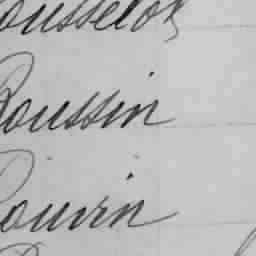 Rousselot
Roussin
Rouvin